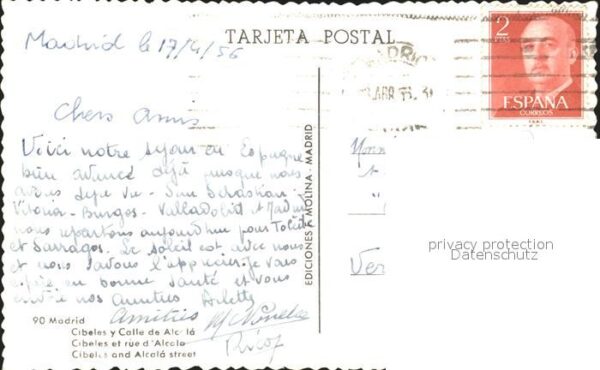 Madrid le 17/4/56
TARJETA POSTAL
2
PTAS
ESPAÑA
CORREOS
Chers Amis
Voici notre séjour en Espagne
bien avancé déjà puisque nous
avons déjà vu - San Sébastian -
Vitoria - Burgos - Valladolid et Madrid
nous repartons aujourd'hui pour Tolède
et Sarragos. Le soleil est avec nous
et nous savons l'apprécier. Je vous
en bonne santé et vous
nos Amitiés Arlette
Amitiés
EDICIONES A MOLINA - MADRID
privacy protection
Datenschutz
Ver
90 Madrid
Cibeles y Calle de Alcalá
Cibeles et rue d'Alcala
Cibeles and Alcalá street